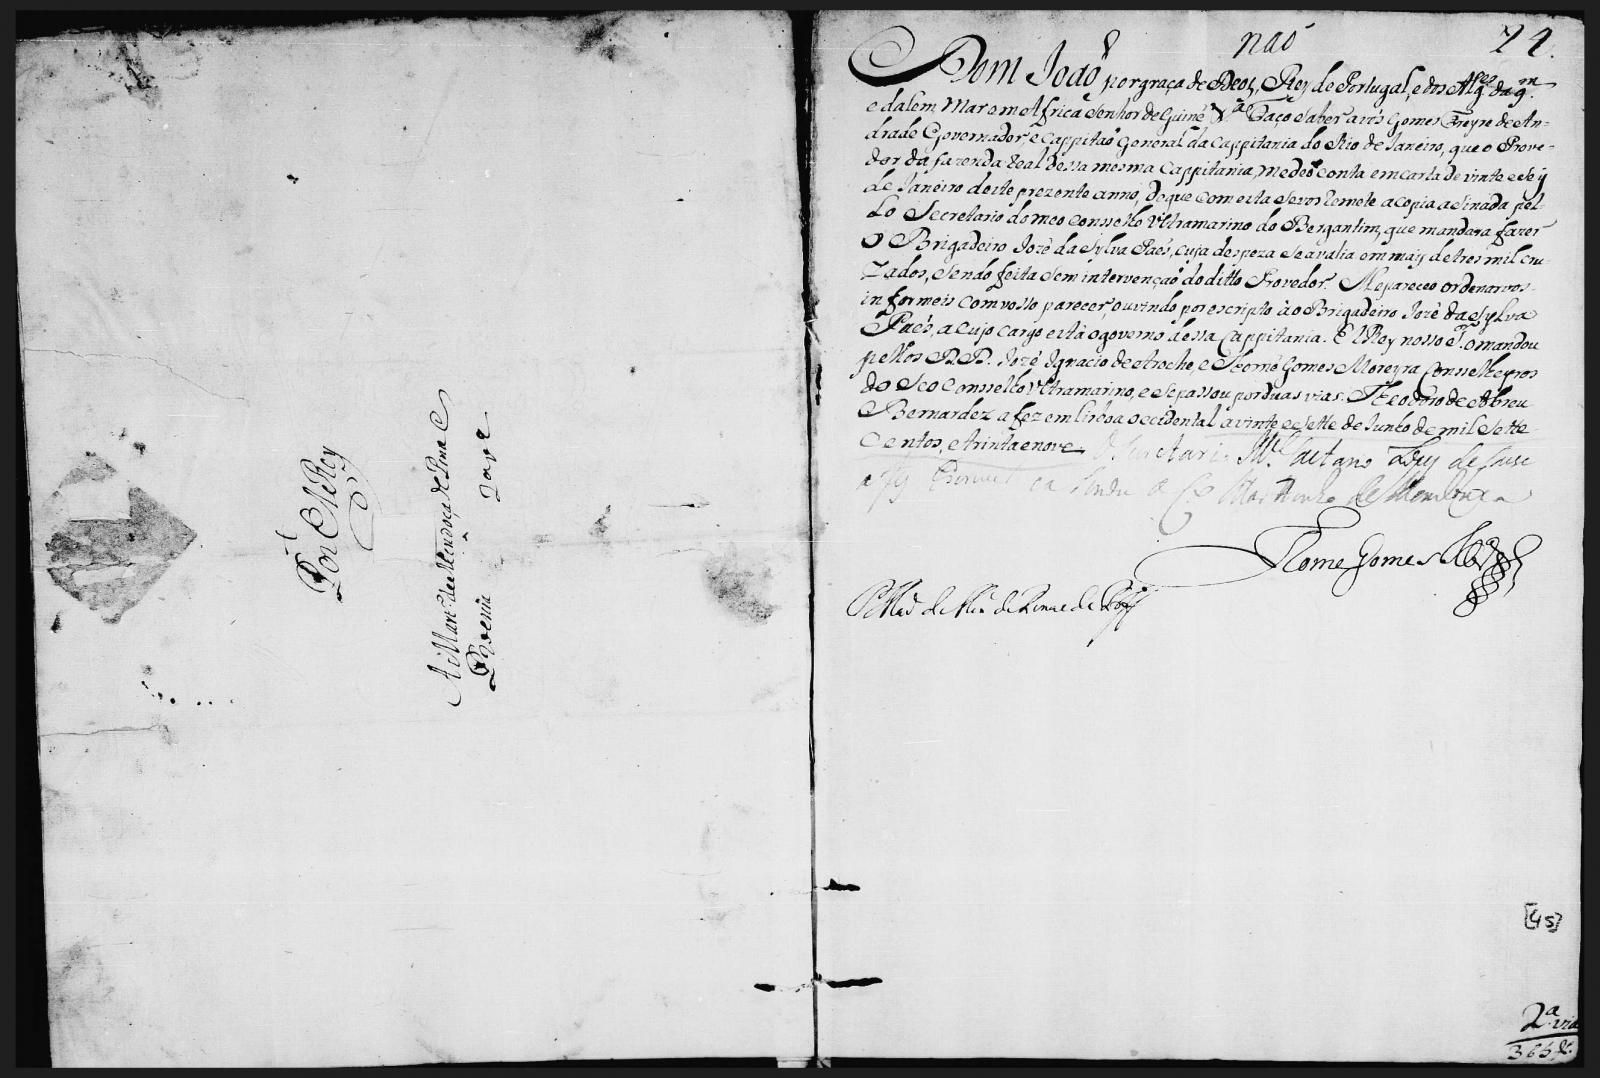 Por ElRey
A Mart.º de Mendoça de Pina e
Proença
não
24.
Dom João, por graça de Deos, Rey de Portugal, e dos Alg.es daq.m
e dalem, Mar em Africa Senhor de Guiné &a Faço saber a vós Gomes Freyre de An-
drade Governador, e Cappitaõ General da Cappitania do Rio de Janeiro, que o Prove-
dor da fazenda Real dessa mesma Cappitania, me deo conta em carta de vinte e seij
de Janeiro deste prezente anno, de que com esta se vos remete a copia asinada pel-
lo Secretario do meo Conselho Ultramarino do Bergantim, que mandara fazer
o Brigadeiro Jozé da Sylva Paés, cuja despeza se avalia em maij de tres mil cru-
zados, sendo feita sem intervenção do ditto Provedor. Me pareceo ordenarvos
informeis com vosso parecer, ouvindo por escripto ào Brigadeiro Jozé da Sylva
Paés, a cujo cargo está o governo dessa Cappitania. ElRey nosso S.r o mandou
pellos DD. Jozé Ignacio de Aroche, e Thomé Gomes Moreyra Conselheyros
do Seo Conselho Ultramarino, e se passou por duas vias. Theodoro de Abreu
Bernardez a fez em Lisboa occidental a vinte e sette de Junho de mil sette
centos, e trinta e nove. O Secretario M.el Caetano Lopes de Lavre
a fez escrever
Thome Gomes Mor.ra
[45]
2.ª via